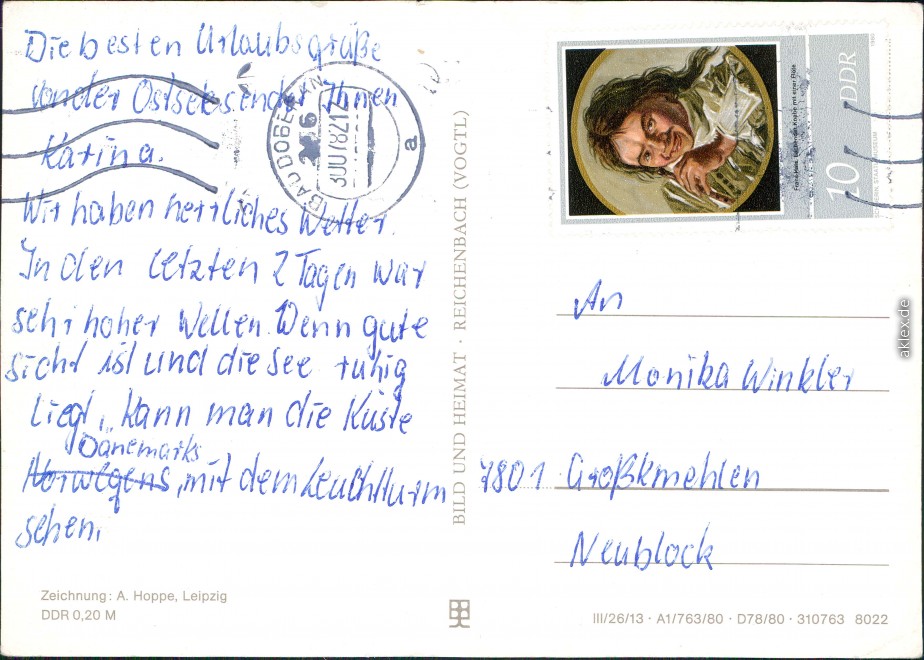 Die besten Urlaubsgrüße
von der Ostsee sendet Ihnen
Karina.
Wir haben herrliches Wetter.
In den letzten 2 Tagen war
sehr hoher Wellen. Wenn gute
sicht ist und die see ruhig
liegt, kann man die Küste
Dänemarks
Norwegens, mit dem Leuchtturm
sehen.
Zeichnung: A. Hoppe, Leipzig
DDR 0,20 M
BAD DOBERAN
a
BILD UND HEIMAT · REICHENBACH (VOGTL)
10 DDR
1980
An
Monika Winkler
7801 Großkmehlen
Neublock
III/26/13 · A1/763/80 · D78/80 · 310763 8022
akpool.de